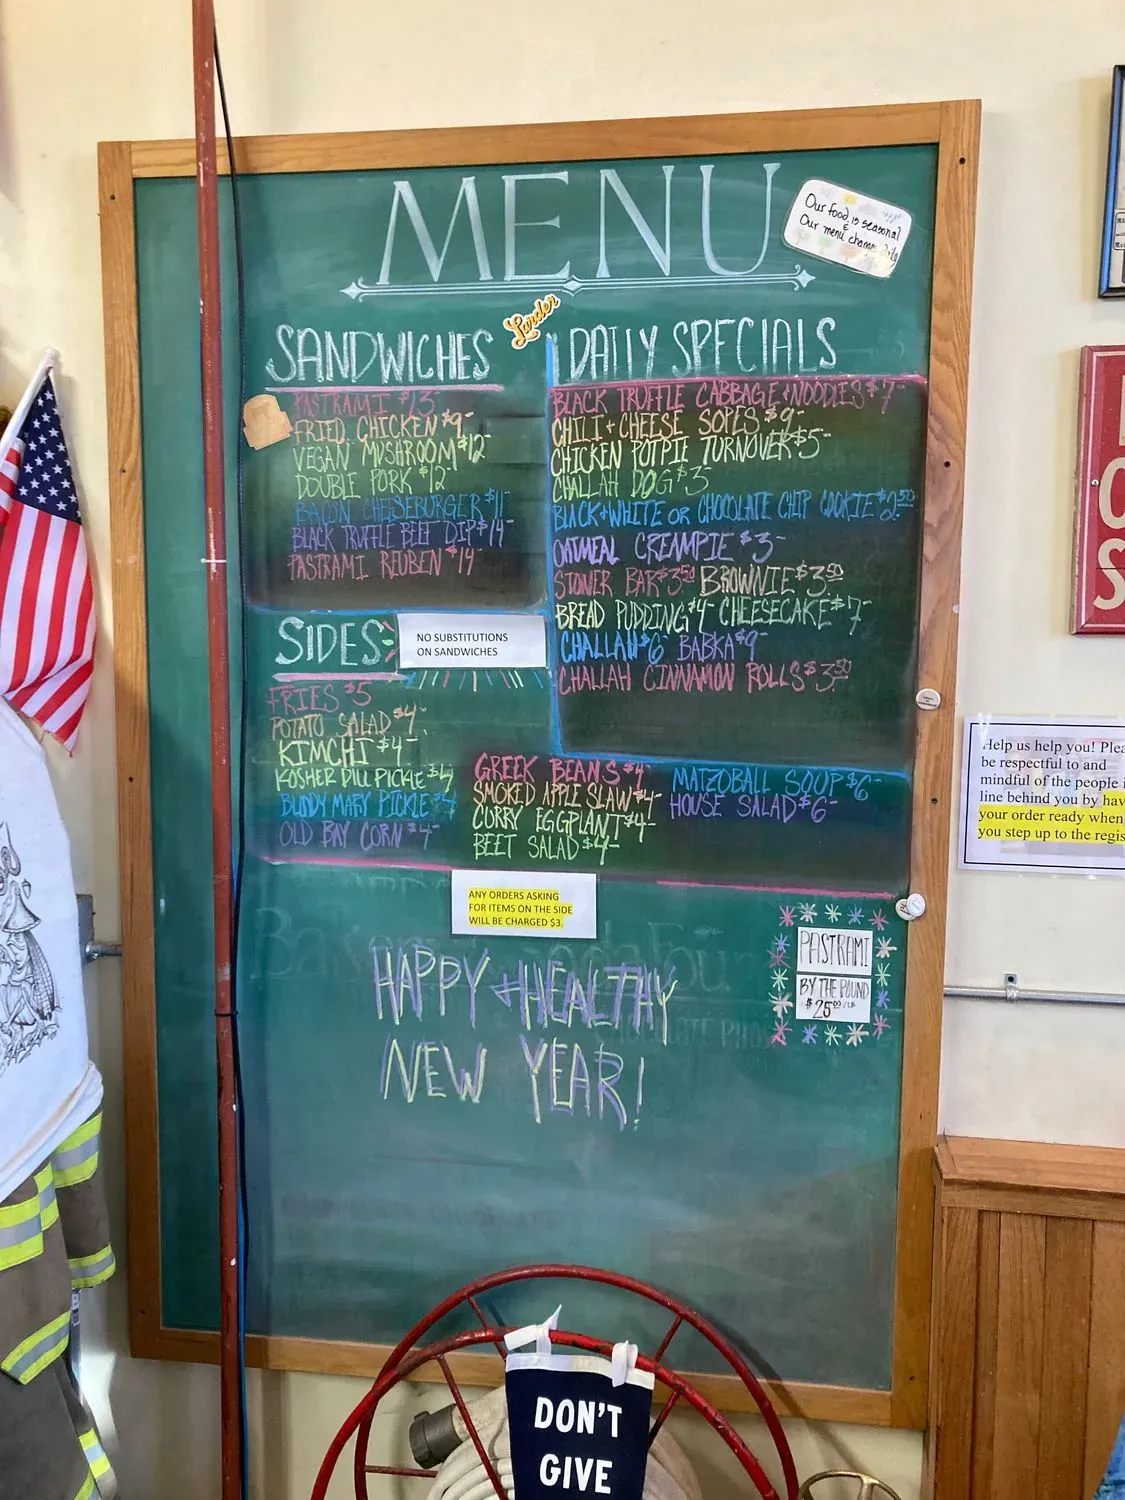 MENU
Our food is seasonal
&
Our menu changes daily
Larder
SANDWICHES
PASTRAMI $13-
FRIED CHICKEN $9-
VEGAN MUSHROOM $12-
DOUBLE PORK $12-
BACON CHEESEBURGER $11-
BLACK TRUFFLE BEEF DIP $14-
PASTRAMI REUBEN $14-
DAILY SPECIALS
BLACK TRUFFLE CABBAGE + NOODLES $7-
CHILI + CHEESE SOPES $9-
CHICKEN POTPIE TURNOVER $5-
CHALLAH DOG $3-
BLACK + WHITE OR CHOCOLATE CHIP COOKIE $2.50
OATMEAL CREAMPIE $3-
STONER BAR $3.50 BROWNIE $3.50
BREAD PUDDING $4- CHEESECAKE $7-
CHALLAH $6 BABKA $9-
CHALLAH CINNAMON ROLLS $3.50
SIDES
NO SUBSTITUTIONS
ON SANDWICHES
FRIES $5
POTATO SALAD $4-
KIMCHI $4-
KOSHER DILL PICKLE $4
BLOODY MARY PICKLE $4
OLD BAY CORN $4-
GREEK BEANS $4-
SMOKED APPLE SLAW $4-
CURRY EGGPLANT $4-
BEET SALAD $4-
MATZOBALL SOUP $6-
HOUSE SALAD $6-
ANY ORDERS ASKING
FOR ITEMS ON THE SIDE
WILL BE CHARGED $3.
HAPPY + HEALTHY
NEW YEAR!
PASTRAMI
BY THE POUND
$25.00/LB
Help us help you! Plea
be respectful to and
mindful of the people i
line behind you by hav
your order ready when
you step up to the regis
DON'T
GIVE